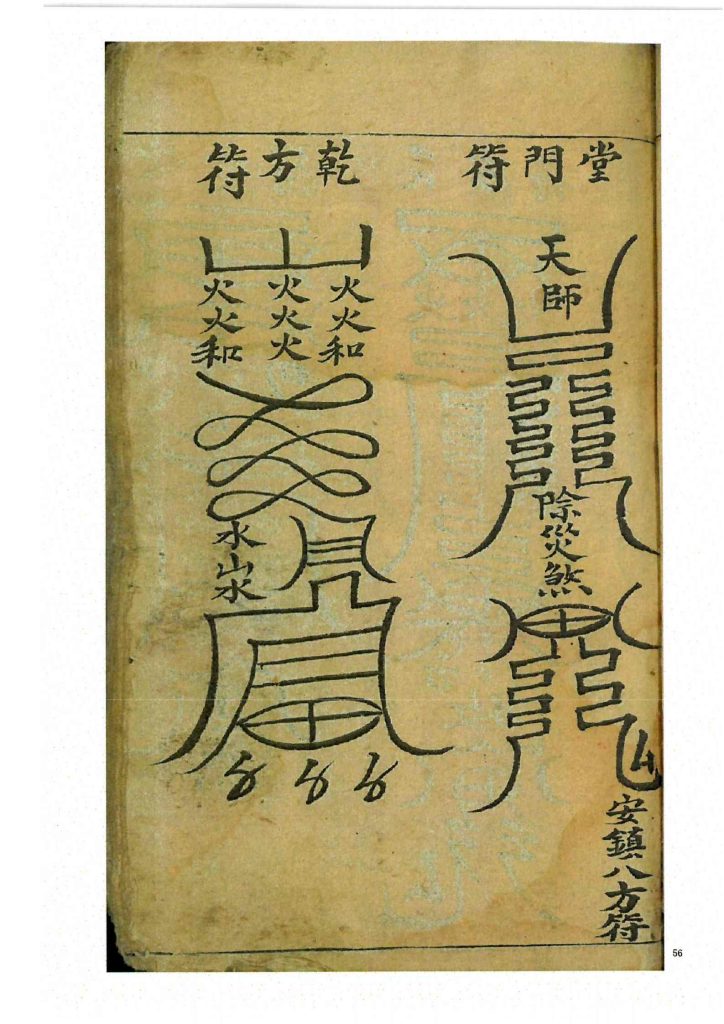 堂門符
天師
除災煞
安鎮八方符
乾方符
火火和
火火火
火火和
水山水
56